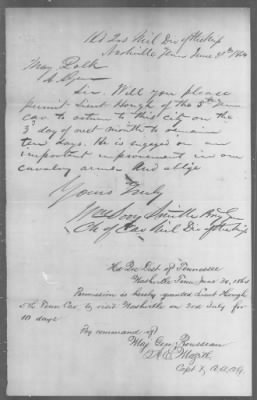 Hd Qrs Mil Div of Miss
Nashville Tenn June 30th 1864
Maj Polk
A.
Sir. Will you please
permit Lieut Hough of the 5th Tenn
Cav to return to this city on the
3d day of next month to remain
ten days. He is engaged on an
important improvement in our
cavalry arms And oblige
Yours Truly
Wm Sooy Smith
Ch of Cav Mil Div of Miss
Hd Qrs Dist of Tennessee
Nashville Tenn June 30, 1864
Permission is hereby granted Lieut Hough
5th Tenn Cav to visit Nashville on 3rd July for
10 days
By command of
Maj Gen Rousseau
Capt & A.A.A.G.